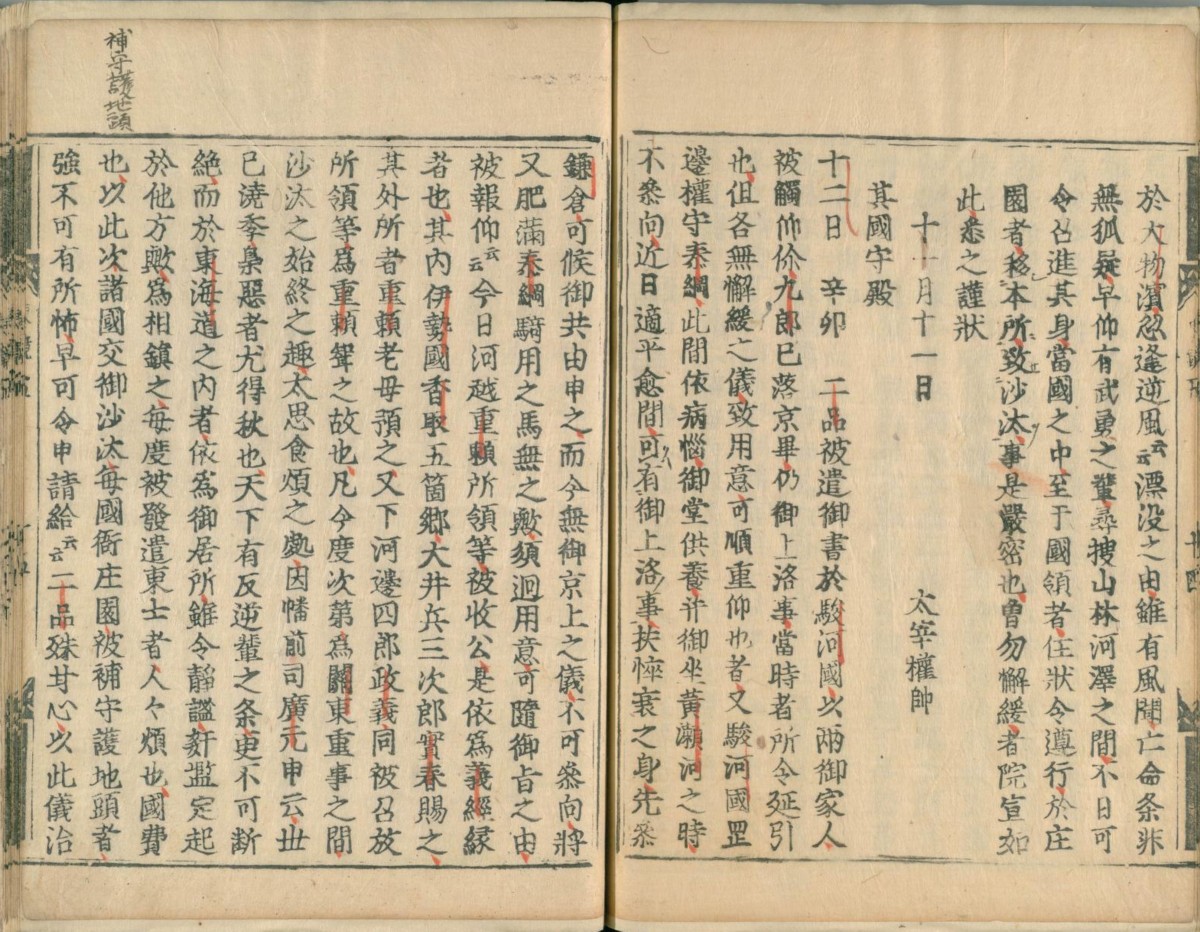 於大物濱忽逢逆風云云漂没之由雖有風聞亡命条非
無狐疑早仰有武勇之輩尋捜山林河澤之間不日可
令召進其身當國之中至于國領者任狀令遵行於庄
園者移本所致沙汰事是嚴密也曽勿懈緩者院宣如
此悉之謹狀
十一月十一日 太宰權帥
其國守殿
十二日 辛卯 二品被遣御書於駿河國以兩御家人
被觸仰伱九郎已落京畢仍御上洛事當時者所令延引
也但各無懈緩之儀致用意可順重仰也者又駿河國罡
邊權守泰綱此間依病惱御堂供養并御坐黄瀬河之時
不叅向近日適平愈間可有御上洛事扶悴衰之身先叅
鎌倉可候御共由申之而今無御京上之儀不可叅向將
又肥滿泰綱騎用之馬無之歟須廻用意可隨御旨之由
被報仰云云今日河越重頼所領等被收公是依爲義經縁
者也其内伊勢國香取五箇郷大井兵三次郎實春賜之
其外所者重頼老母預之又下河邊四郎政義同被召放
所領等爲重頼聟之故也凡今度次第爲關東重事之間
沙汰之始終之趣太思食煩之處因幡前司廣元申云丗
已澆季梟惡者尤得秋也天下有反逆輩之条更不可断
絶而於東海道之内者依爲御居所雖令靜謐奸濫定起
於他方歟爲相鎮之毎度被發遣東士者人々煩也國費
也以此次諸國交御沙汰毎國衙庄園被補守護地頭者
強不可有所怖早可令申請給云云二品殊甘心以此儀治
補守護地頭